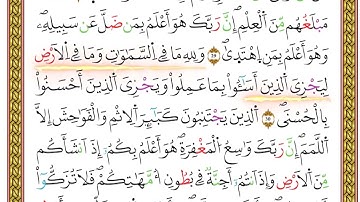 مَبْلَغُهُم مِّنَ ٱلْعِلْمِ إِنَّ رَبَّكَ هُوَ أَعْلَمُ بِمَن ضَلَّ عَن سَبِيلِهِۦ
وَهُوَ أَعْلَمُ بِمَنِ ٱهْتَدَىٰ ٢٩ وَلِلَّهِ مَا فِى ٱلسَّمَٰوَٰتِ وَمَا فِى ٱلْأَرْضِ
لِيَجْزِىَ ٱلَّذِينَ أَسَٰٓـُٔوا۟ بِمَا عَمِلُوا۟ وَيَجْزِىَ ٱلَّذِينَ أَحْسَنُوا۟
بِٱلْحُسْنَى ٣٠ ٱلَّذِينَ يَجْتَنِبُونَ كَبَٰٓئِرَ ٱلْإِثْمِ وَٱلْفَوَٰحِشَ إِلَّا
ٱللَّمَمَ إِنَّ رَبَّكَ وَٰسِعُ ٱلْمَغْفِرَةِ هُوَ أَعْلَمُ بِكُمْ إِذْ أَنشَأَكُم
مِّنَ ٱلْأَرْضِ وَإِذْ أَنتُمْ أَجِنَّةٌ فِى بُطُونِ أُمَّهَٰتِكُمْ فَلَا تُزَكُّوٓا۟